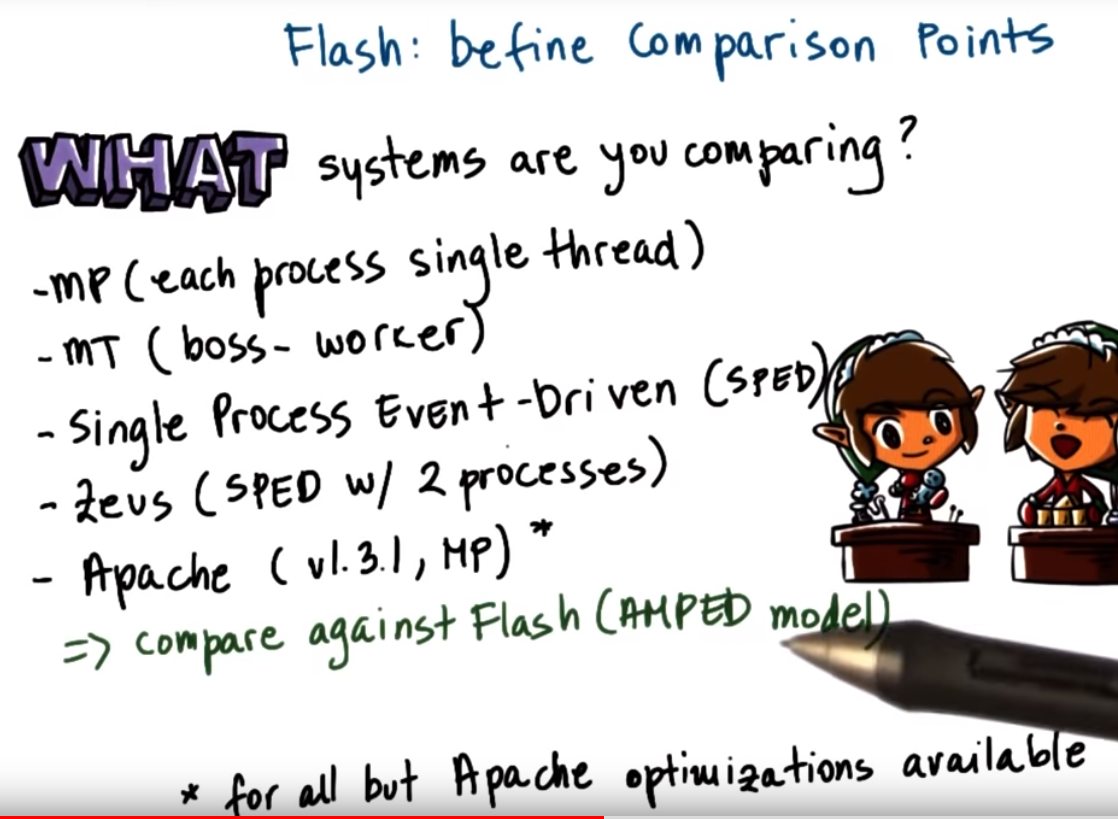 Flash: Define Comparison Points
WHAT systems are you comparing?
- MP (each process single thread)
- MT (boss-worker)
- Single Process Event-Driven (SPED)
- Zeus (SPED w/ 2 processes)
- Apache (v1.3.1, MP) *
=> compare against Flash (AMPED model)
* for all but Apache optimizations available